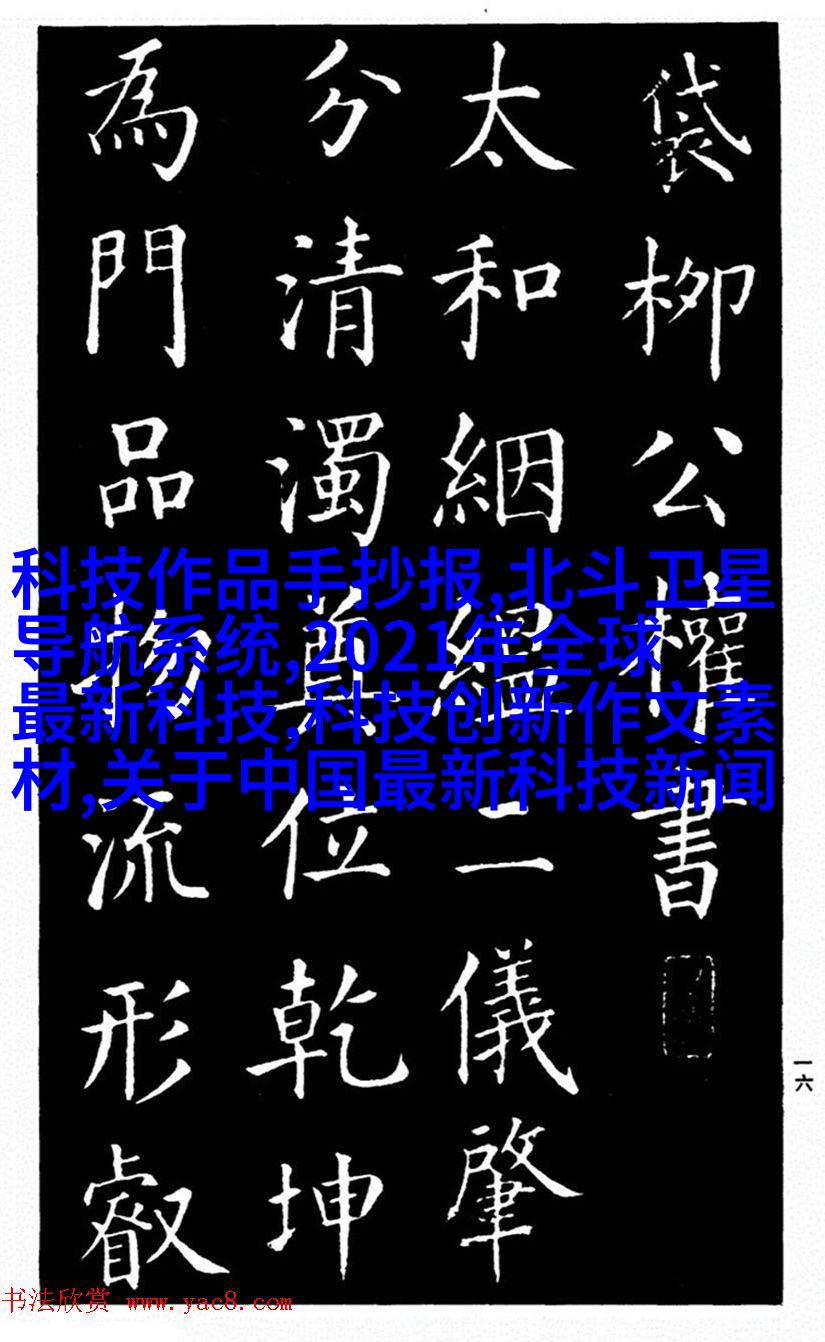 袋柳公權書
太和絪縕二儀肇
分清濁奠位乾坤
為門品物流形叡
科技作品手抄报,北斗卫星
导航系统,2021年全球
最新科技,科技创新作文素
材,关于中国最新科技新闻
一六
书法欣赏 www.yac8.com